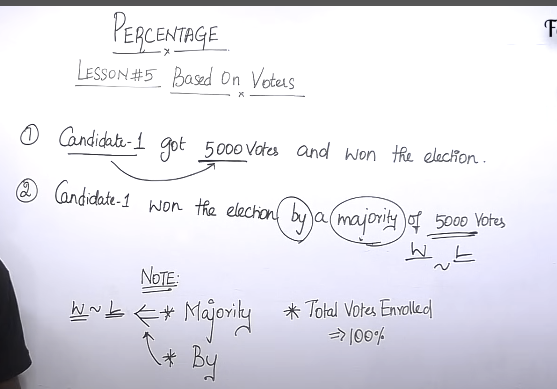 PERCENTAGE
LESSON #5 Based On Voters
① Candidate-1 got 5000 Votes and won the election.
② Candidate-1 won the election by a majority of 5000 Votes
W ~ L
NOTE:
W ~ L ⇐ * Majority * Total Votes Enrolled
⇒ 100%
* By